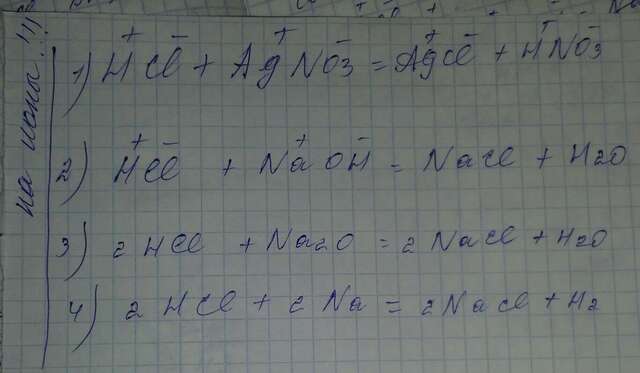 на ионы!!!
1) H⁺Cl⁻ + Ag⁺NO3⁻ = Ag⁺Cl⁻ + H⁺NO3⁻
2) H⁺Cl⁻ + Na⁺OH⁻ = NaCl + H2O
3) 2HCl + Na2O = 2NaCl + H2O
4) 2HCl + 2Na = 2NaCl + H2